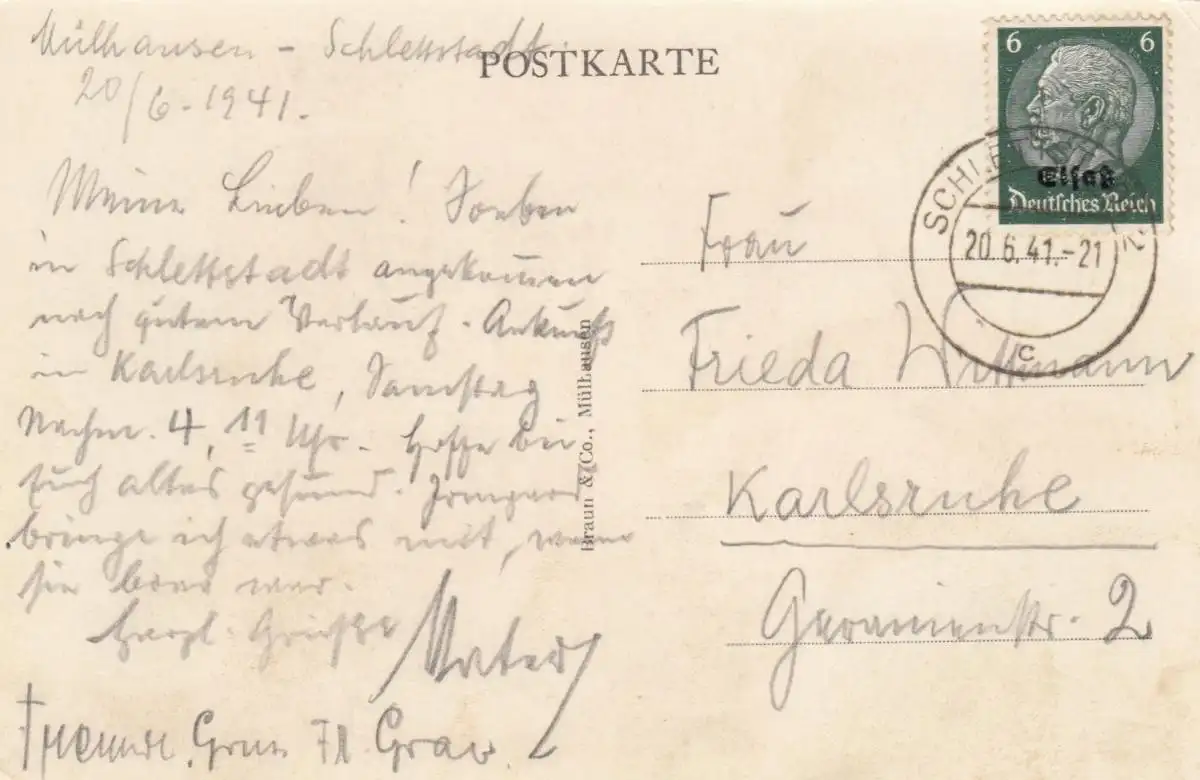 Mülhausen - Schlettstadt.
20/6. 1941.
POSTKARTE
Meine Lieben! Soeben
in Schlettstadt angekommen
nach gutem Verlauf. Ankunft
in Karlsruhe, Samstag
Nachm. 4,11 Uhr. Hoffe bei
Euch alles gesund. Irmgard
bringe ich etwas mit, wenn
sie brav war.
Herzl. Grüße
Vater
Braun & Co., Mülhausen
6 6
Elsaß
Deutsches Reich
SCHLETTSTADT
20.6.41.-21
c
Frau
Frieda Wittmann
Karlsruhe
2